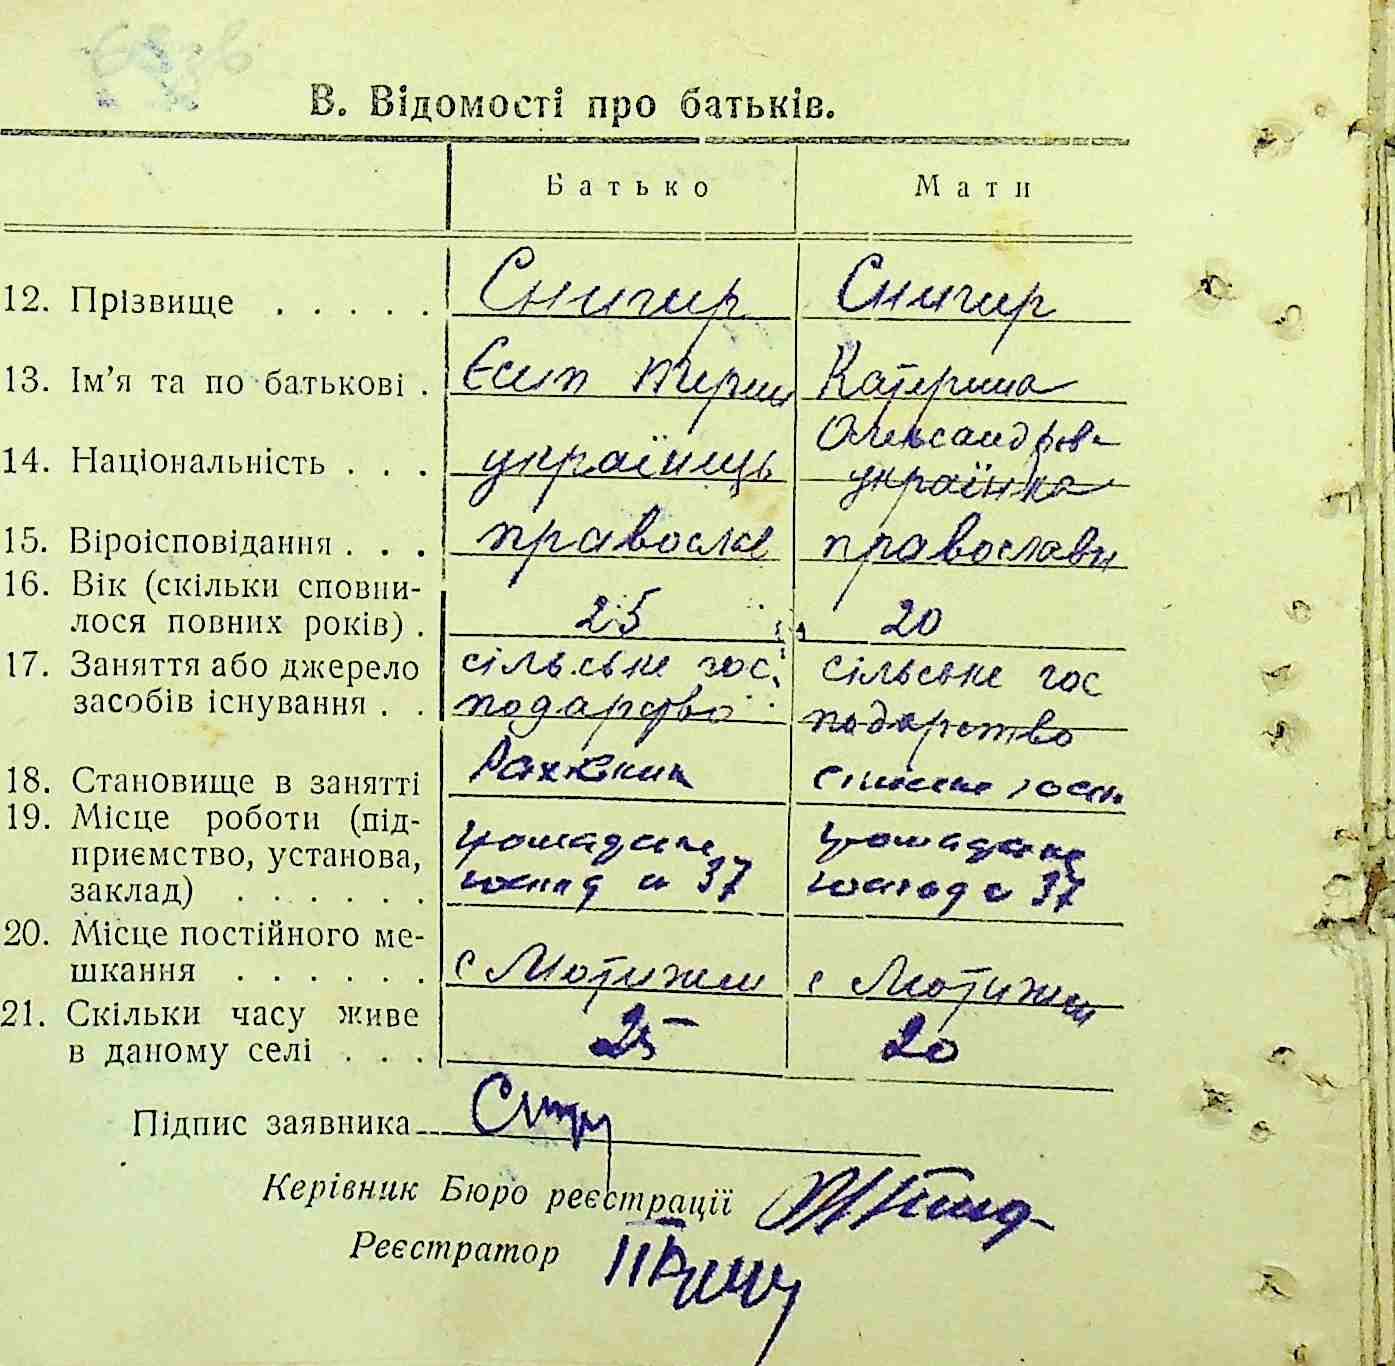 В. Відомості про батьків.
Батько Мати
12. Прізвище . . . . . Снигир Снигир
13. Ім’я та по батькові . Єсип Катерина
Олександрів
14. Національність . . . українець українка
15. Віроісповідання . . . правосла православн
16. Вік (скільки сповни-
лося повних років) . 25 20
17. Заняття або джерело сільське гос сільське гос
засобів існування . . подарство подарство
18. Становище в занятті Рахівник
19. Місце роботи (під- громадське громадське
приємство, установа, 37 37
заклад) . . . . . .
20. Місце постійного ме-
шкання . . . . . . с Мотижин с Мотижин
21. Скільки часу живе
в даному селі . . . 25 20
Підпис заявника
Керівник Бюро реєстрації
Реєстратор